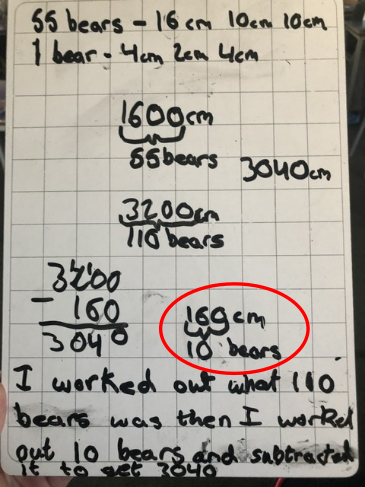 55 bears - 16cm 10cm 10cm
1 bear - 4cm 2cm 4cm
1600cm
55 bears
3040cm
3200cm
110 bears
3200
- 160
3040
160cm
10 bears
I worked out what 110
bears was then I worked
out 10 bears and subtracted
it to get 3040